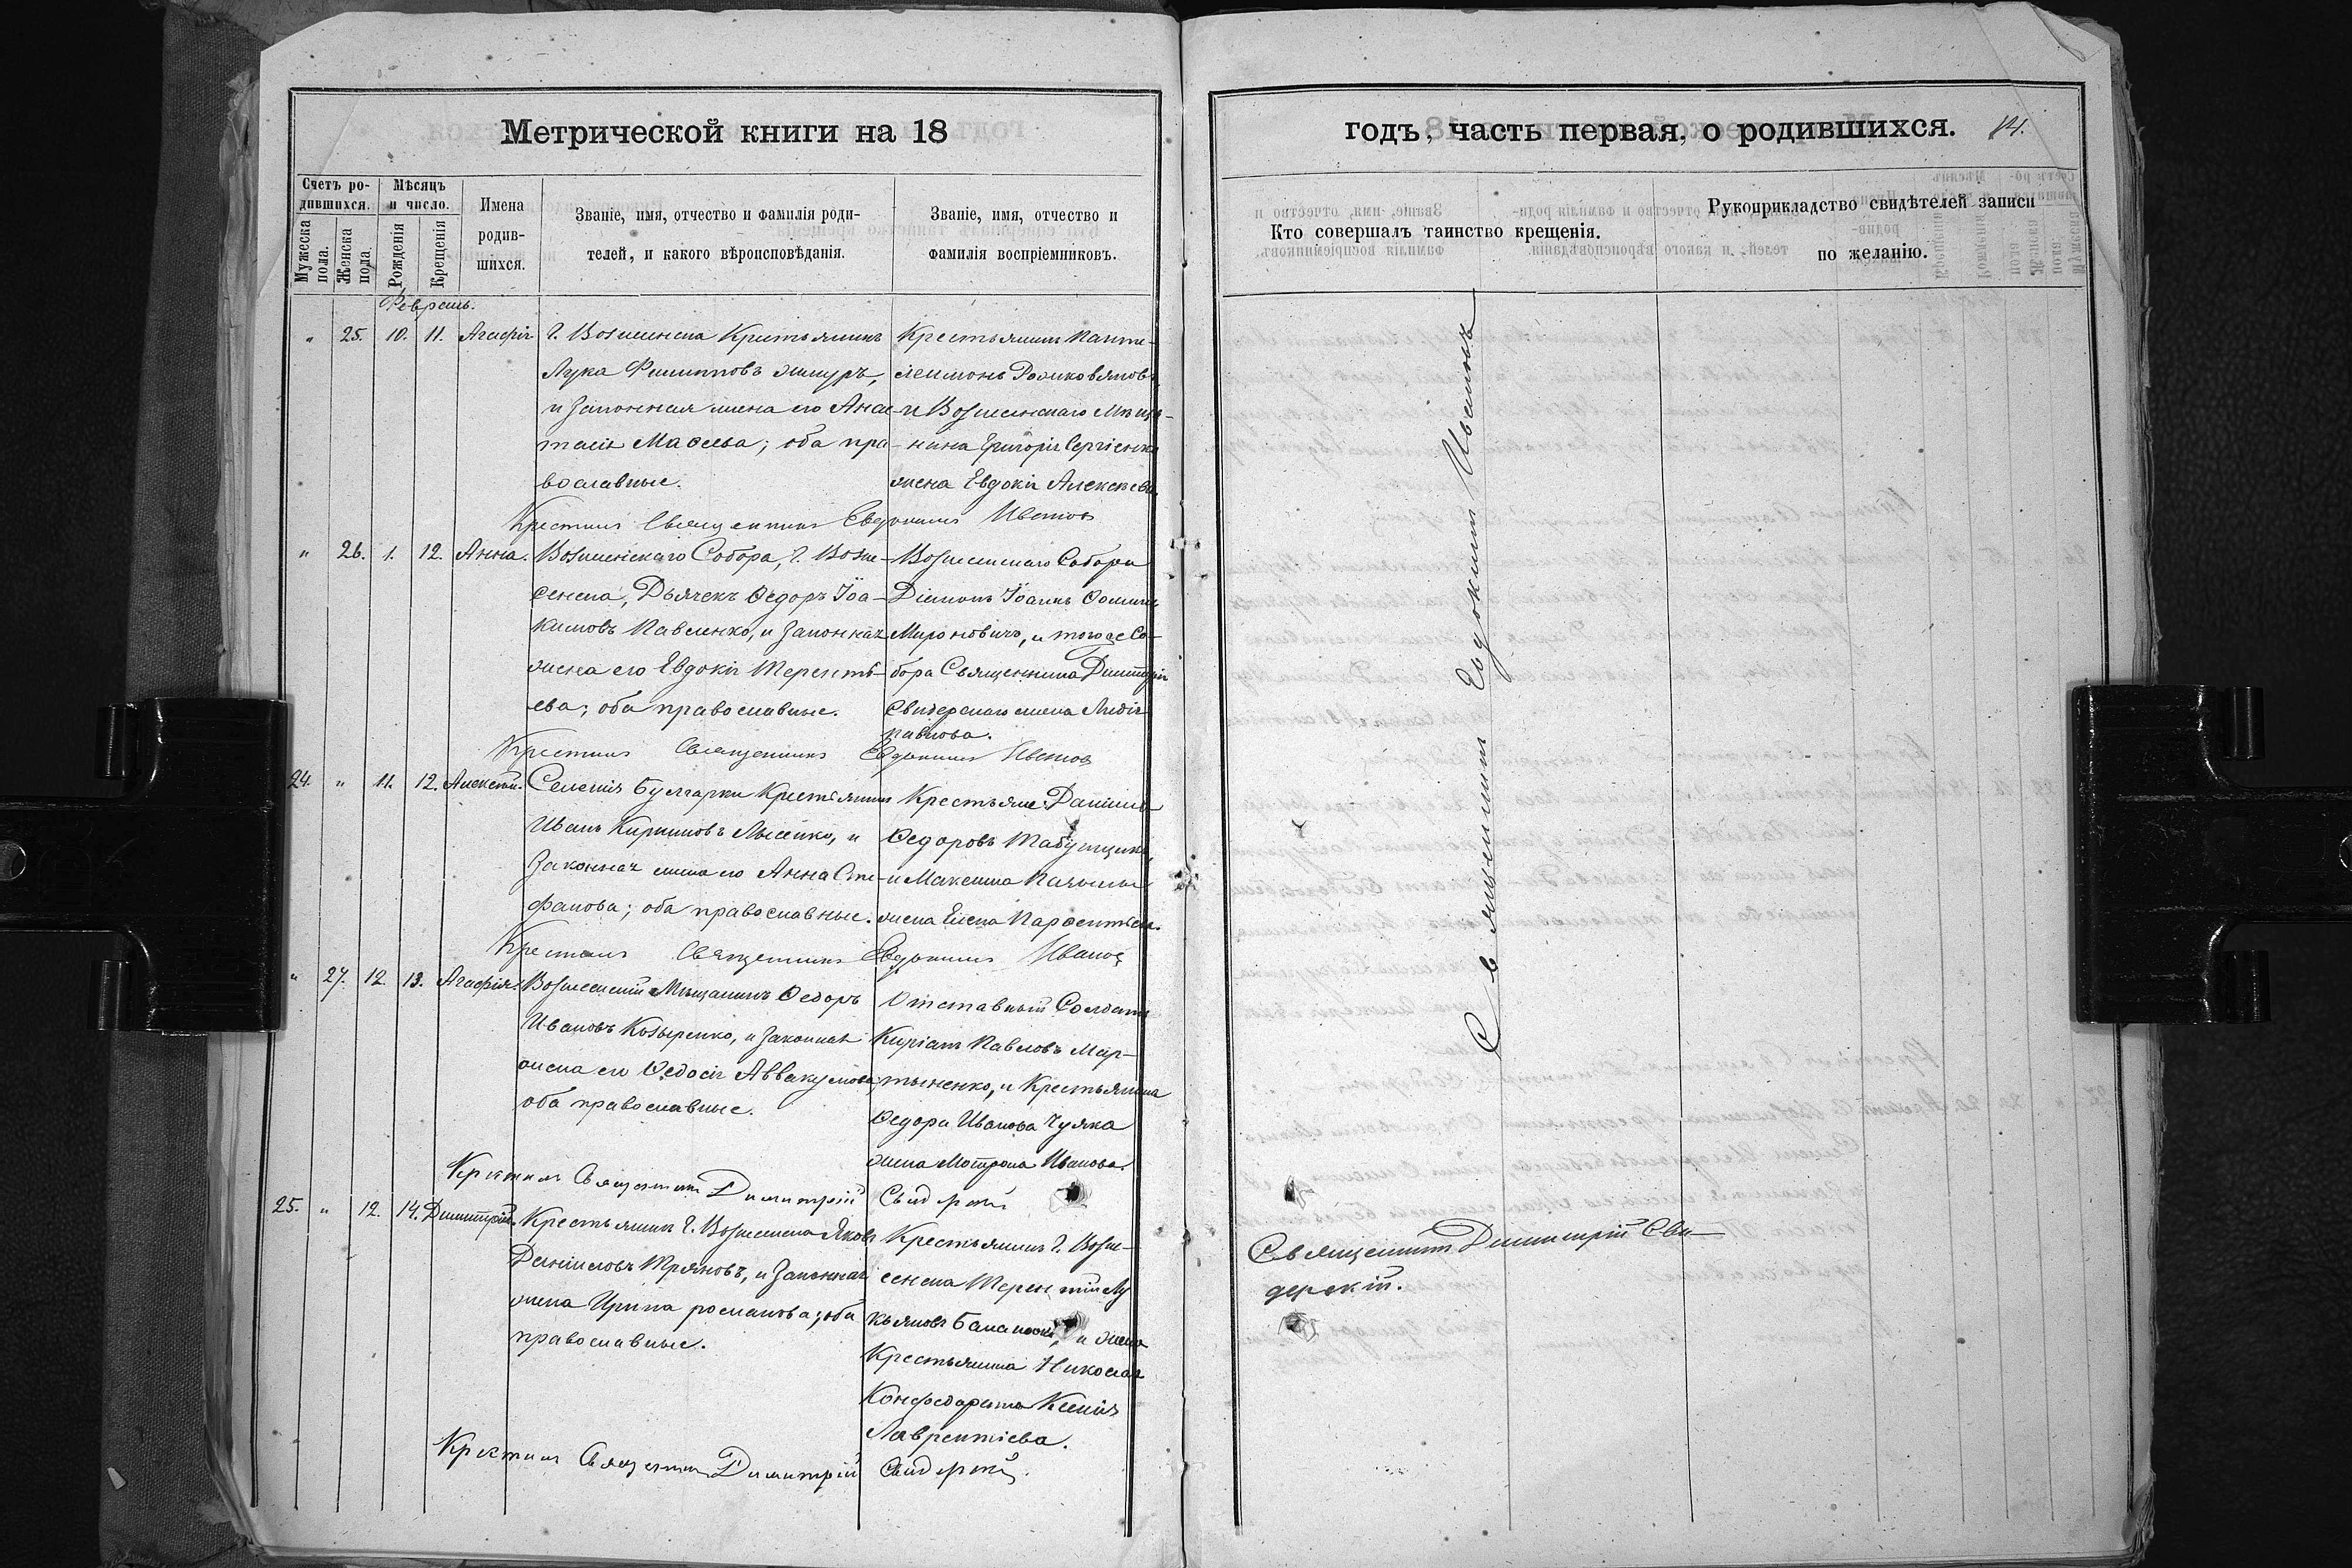 Метрической книги на 18
Счетъ ро-
дившихся.
Мужеска
пола.
Женска
пола.
Мѣсяцъ
и число.
Рожденія
Крещенія
Имена
родив-
шихся.
Званіе, имя, отчество и фамилія роди-
телей, и какого вѣроисповѣданія.
Званіе, имя, отчество и
фамилія воспріемниковъ.
Февраль.
" 25. 10. 11. Агафія
Г. Вознесенска Крестьянинъ
Лука Филипповъ
и законная жена его Анас-
тасія Маѳеева; оба пра-
вославные.
Крестьянинъ Панте-
леимонъ
и Вознесенскаго Мѣща-
нина Григорія Сергіенка
жена Евдокія Алексѣева.
Крестилъ Священникъ Евдокимъ Ивановъ
" 26. 1. 12. Анна.
Вознесенскаго Собора, г. Возне-
сенска, Дьячекъ Ѳедоръ Іоа-
кимовъ Павленко, и законная
жена его Евдокія Терентъ-
ева; оба православные.
Вознесенскаго Собора
Діаконъ Іоаннъ Ѳомичъ
Мироновичъ, и тогоже Со-
бора Священника Димитрія
Свидерскаго жена Лидія
Павлова.
Крестилъ Священникъ Евдокимъ Ивановъ
24. " 11. 12. Алексѣй.
Селенія Булгарки Крестьянинъ
Иванъ Кирилловъ Лысенко, и
законная жена его Анна Сте-
фанова; оба православные.
Крестьяне: Даніилъ
Ѳедоровъ Табунщикъ,
и Максима
жена Елена Парѳентьева.
Крестилъ Священникъ Евдокимъ Ивановъ
" 27. 12. 13. Агафія.
Вознесенскій Мѣщанинъ Ѳедоръ
Ивановъ Козыренко, и законная
жена его Ѳедосія Аввакумова;
оба православные.
Отставный Солдатъ
Киріакъ Павловъ Мар-
тыненко, и Крестьянина
Ѳедора Иванова Чуяка
жена Мотрона Иванова.
Крестилъ Священникъ Димитрій Свидерскій
25. " 12. 14. Димитрій.
Крестьянинъ г. Вознесенска Яковъ
Даніиловъ Тряновъ, и законная
жена Ирина романова; оба
православные.
Крестьянинъ г. Возне-
сенска Терентій Лу
кьяновъ и жена
Крестьянина Николая
Конфедората Ксенія
Лаврентіева.
Крестилъ Священникъ Димитрій Свидерскій.
годъ, часть первая, о родившихся. 14.
Кто совершалъ таинство крещенія.
Рукоприкладство свидѣтелей записи
по желанію.
Священникъ Евдокимъ Ивановъ
Священникъ Димитрій Сви-
дерскій.